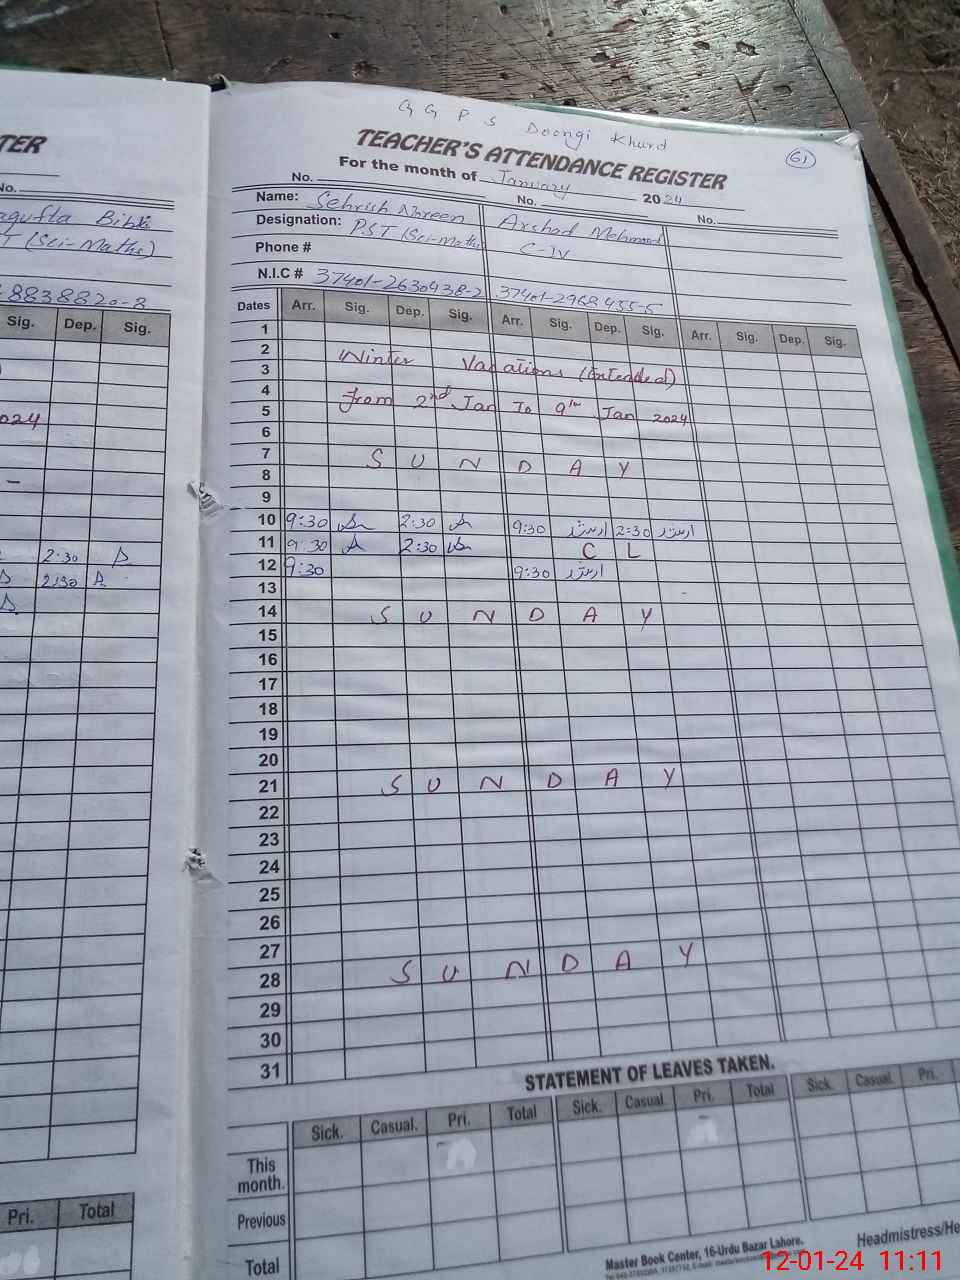 G G P S Doongi Khurd
61
TER
TEACHER'S ATTENDANCE REGISTER
For the month of January 2024
No.
No. No. No.
Name: Sehrish Noreen Arshad Mehmood
agufta Bibi
Designation: PST (Sci-Maths) C-IV
T (Sci-Maths)
Phone #
N.I.C # 37401-2630438-2 37401-2968455-5
8838820-8
Sig. Dep. Sig.
Dates Arr. Sig. Dep. Sig. Arr. Sig. Dep. Sig. Arr. Sig. Dep. Sig.
1
2
Winter Vacations (Extended)
3
4
From 2nd Jan To 9th Jan 2024
024
5
6
7 S U N D A Y
8
9
10 9:30 2:30 9:30 ارشد 2:30 ارشد
11 9:30 2:30 C L
2:30
12 9:30 9:30 ارشد
2:30
13
14 S U N D A Y
15
16
17
18
19
20
21 S U N D A Y
22
23
24
25
26
27
28 S U N D A Y
29
30
31
STATEMENT OF LEAVES TAKEN.
Sick. Casual. Pri. Total Sick. Casual. Pri. Total Sick. Casual. Pri.
This month.
Previous
Total
Pri. Total
Master Book Center, 16-Urdu Bazar Lahore.
Headmistress/He
12-01-24 11:11